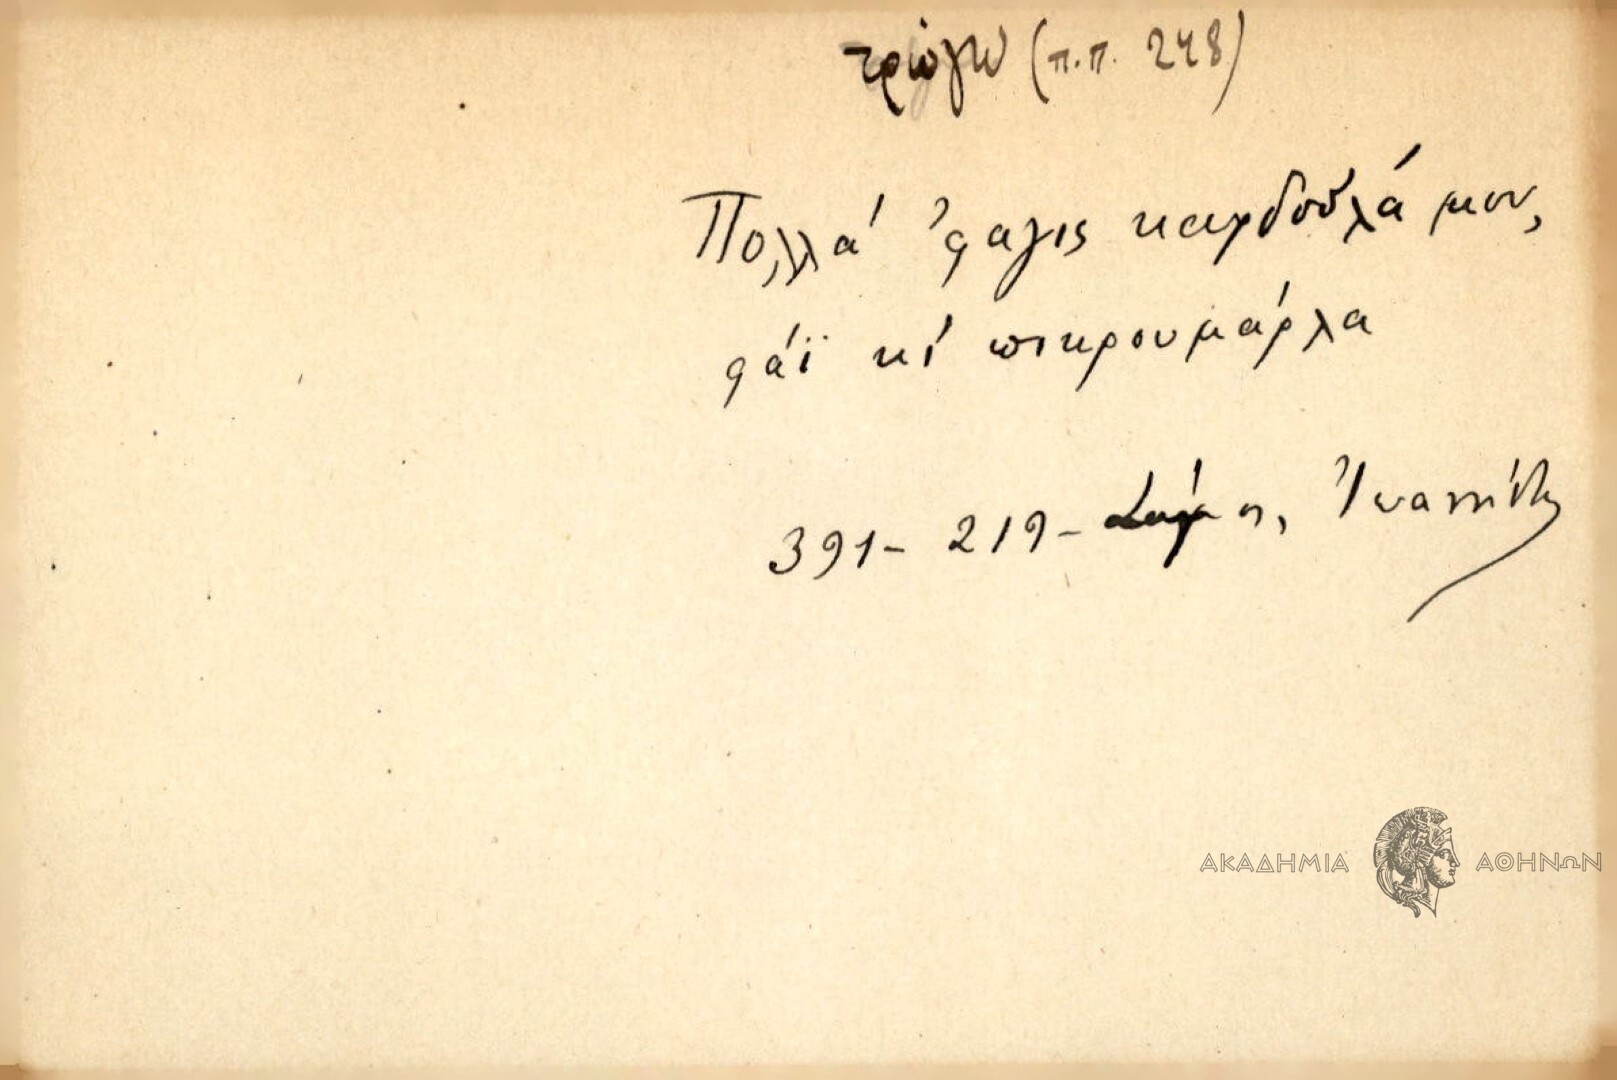 τρώγω (π.π. 248)
Πολλά 'φαγις καρδούλά μου,
φάϊ κί πικρουμάρλα
391- 219- Σάμος, Ἰωαννίδης
ΑΚΑΔΗΜΙΑ ΑΘΗΝΩΝ